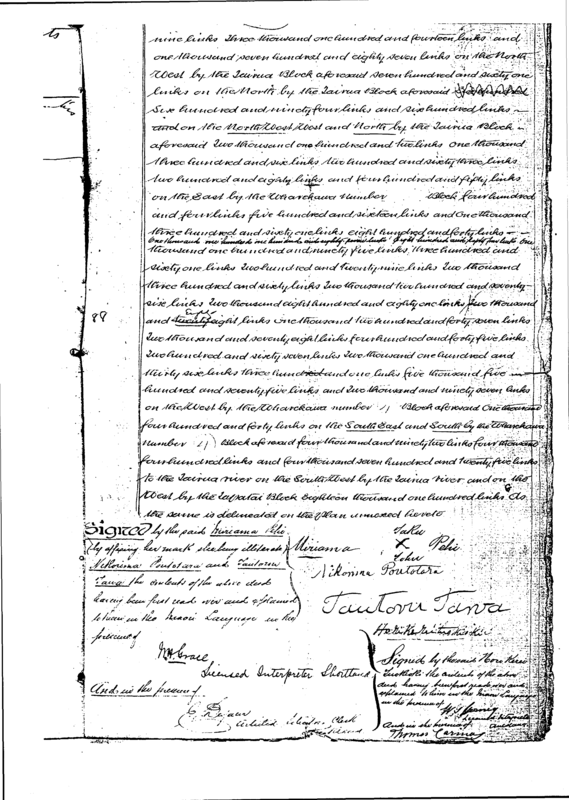 nine links Three thousand one hundred and fourteen links and
one thousand seven hundred and eighty seven links on the North
West by the Tairua Block aforesaid seven hundred and sixty one
links on the North by the Tairua Block aforesaid
Six hundred and ninety four links and six hundred links
and on the North West West and North by the Tairua Block
aforesaid Two thousand one hundred and two links One thousand
three hundred and six links two hundred and sixty three links
two hundred and eighty links and four hundred and fifty links
on the East by the Wharekawa number Block four hundred
and four links five hundred and sixteen links and One thousand
three hundred and sixty one links eight hundred and forty links
One thousand one hundred and eighty links Eight hundred and eighty four links One
thousand one hundred and ninety five links Three hundred and
sixty one links Two hundred and twenty nine links Two thousand
three hundred and sixty links Two thousand two hundred and seventy
six links Two thousand eight hundred and eighty one links Two thousand
88
and twenty eight links One thousand two hundred and forty seven links
Two thousand and seventy eight links four hundred and forty five links
Two hundred and sixty seven links Two thousand one hundred and
thirty six links three hundred and one links five thousand five
hundred and seventy five links and Two thousand and ninety seven links
on the West by the Wharekawa number 4 Block aforesaid One thousand
four hundred and forty links on the South East and South by the Wharekawa
number 4 Block aforesaid four thousand and ninety two links four thousand
four hundred links and four thousand seven hundred and twenty five links
to the Tairua river on the South West by the Tairua river and on the
West by the Block Eighteen thousand one hundred links As
the same is delineated on the Plan annexed hereto
Signed by the said Miriama Pehi
(by affixing her mark she being illiterate)
Nikorima Poutotara and Tautoru
Tawa the contents of the above deed
having been first read over and explained
to them in the Maori Language in the
presence of
Licensed Interpreter Shortland
And in the presence of
Clerk
Shortland
Taku
Miriama X Pehi
Tohu
Nikorima Poutotara
Tautoru Tawa
Signed by the said
the contents of the above
deed having been first read over and
explained to him in the Maori Language
in the presence of
Licensed Interpreter
And in the presence of
Thomas